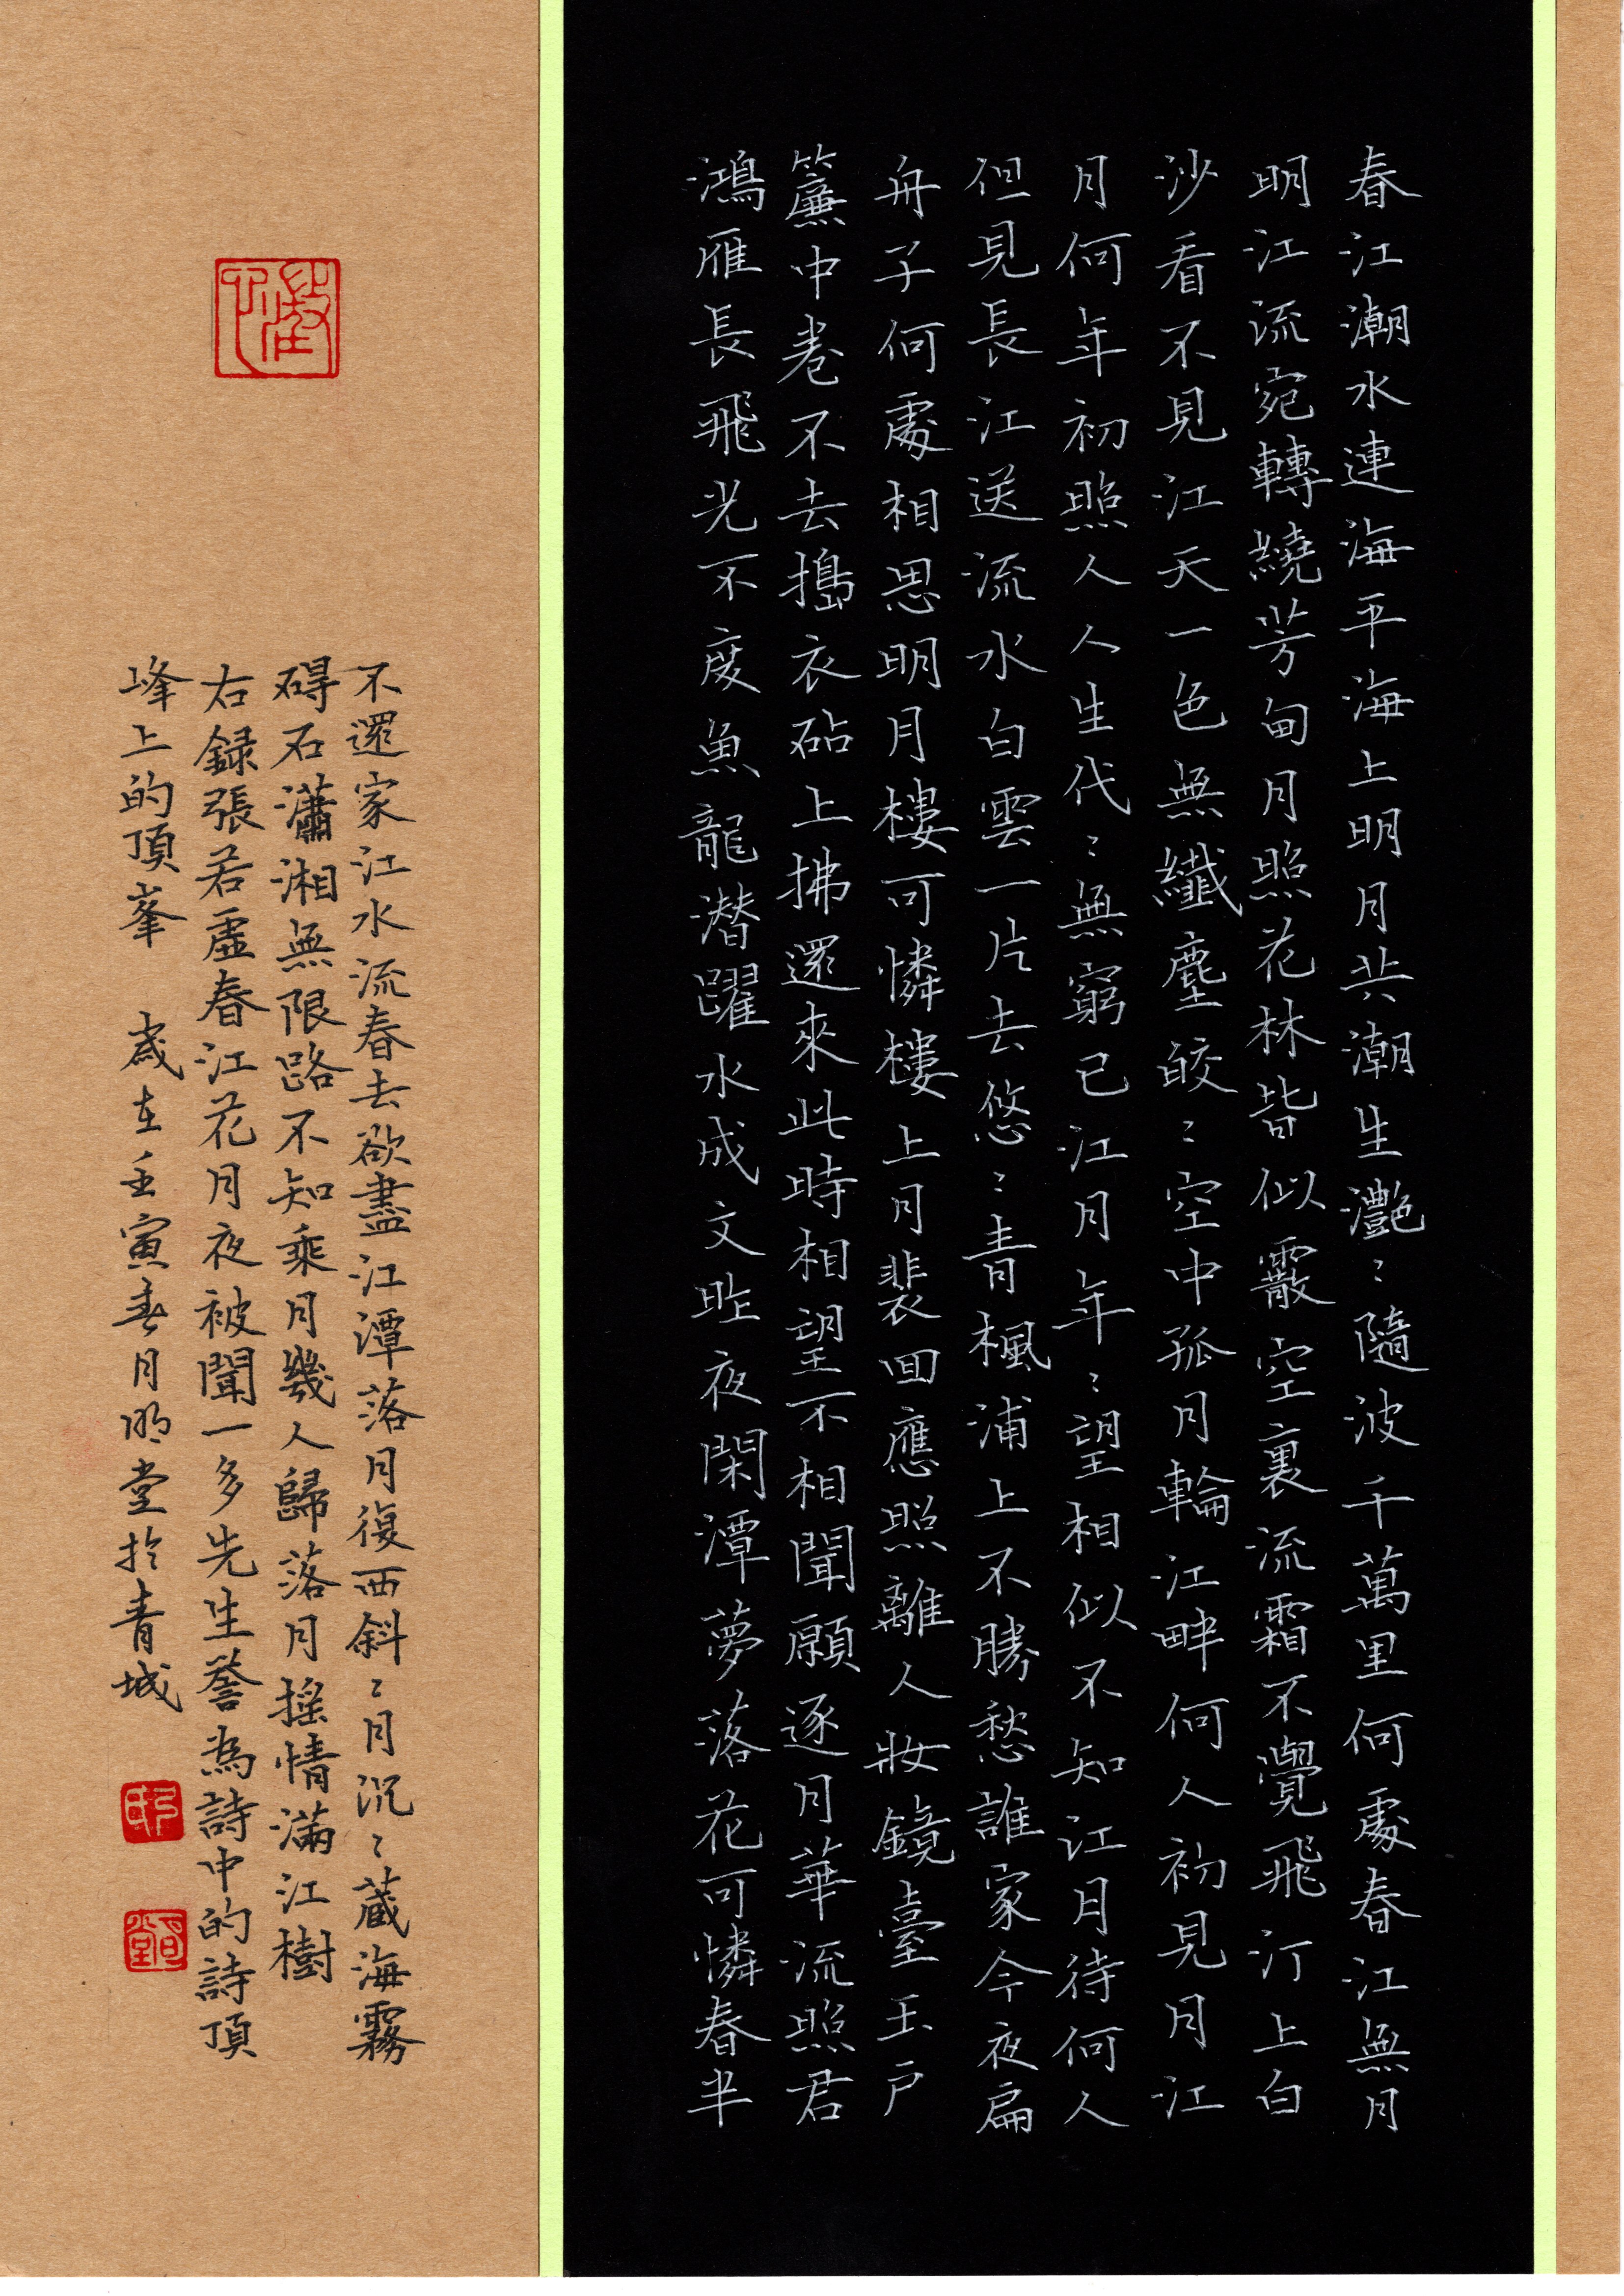 春江潮水連海平海上明月共潮生灧〻隨波千萬里何處春江無月
明江流宛轉繞芳甸月照花林皆似霰空裏流霜不覺飛汀上白
沙看不見江天一色無纖塵皎〻空中孤月輪江畔何人初見月江
月何年初照人人生代〻無窮已江月年〻望相似不知江月待何人
但見長江送流水白雲一片去悠〻青楓浦上不勝愁誰家今夜扁
舟子何處相思明月樓可憐樓上月裴回應照離人妝鏡臺玉戶
簾中卷不去搗衣砧上拂還來此時相望不相聞願逐月華流照君
鴻雁長飛光不度魚龍潛躍水成文昨夜閑潭夢落花可憐春半
不還家江水流春去欲盡江潭落月復西斜〻月沉〻藏海霧
碍石瀟湘無限路不知乘月幾人歸落月搖情滿江樹
右録張若虛春江花月夜被聞一多先生譽為詩中的詩頂
峰上的頂峯 歲在壬寅春月明堂於青城